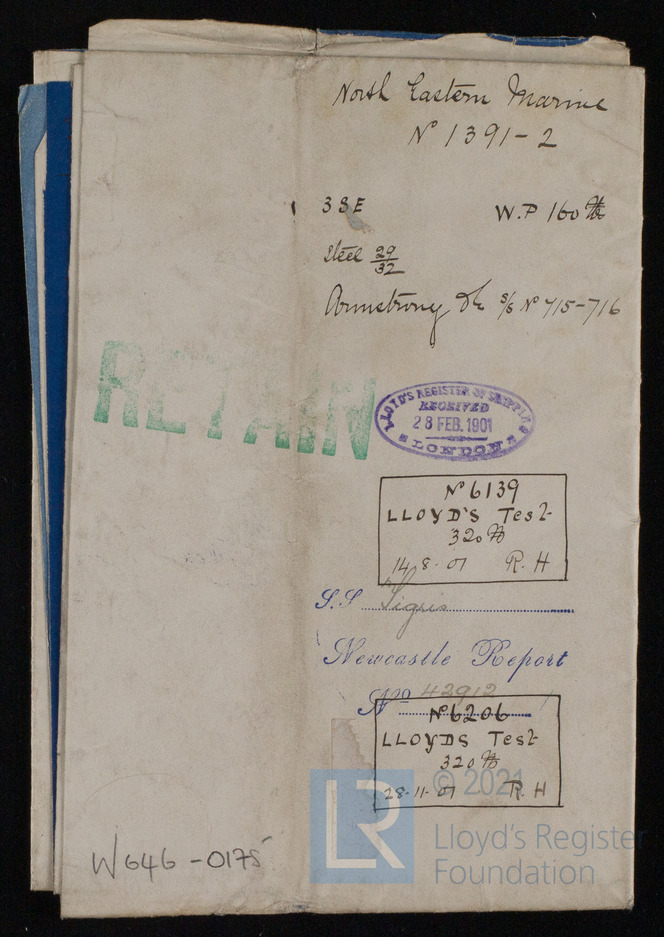 North Eastern Marine
Nº 1391-2
3SE
W.P 160 ℔
Steel 29/32
Armstrong &c S/S Nº 715-716
RETAIN
LLOYD'S REGISTER OF SHIPPING
RECEIVED
28 FEB. 1901
LONDON
Nº 6139
LLOYD'S Test
320 ℔
14-8-01 R.H
S.S. Tigris
Newcastle Report
Nº 42912
Nº 6206
LLOYDS Test
320 ℔
28-11-01 R.H
W646-0175
LR
© 2021
Lloyd's Register
Foundation